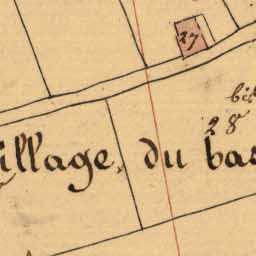 27
bis
28
illage, du bas